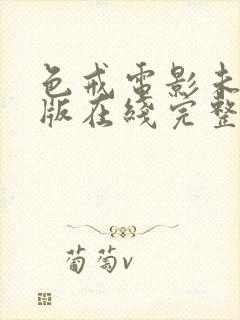 色戒電影未
版在綫完整
葡萄v